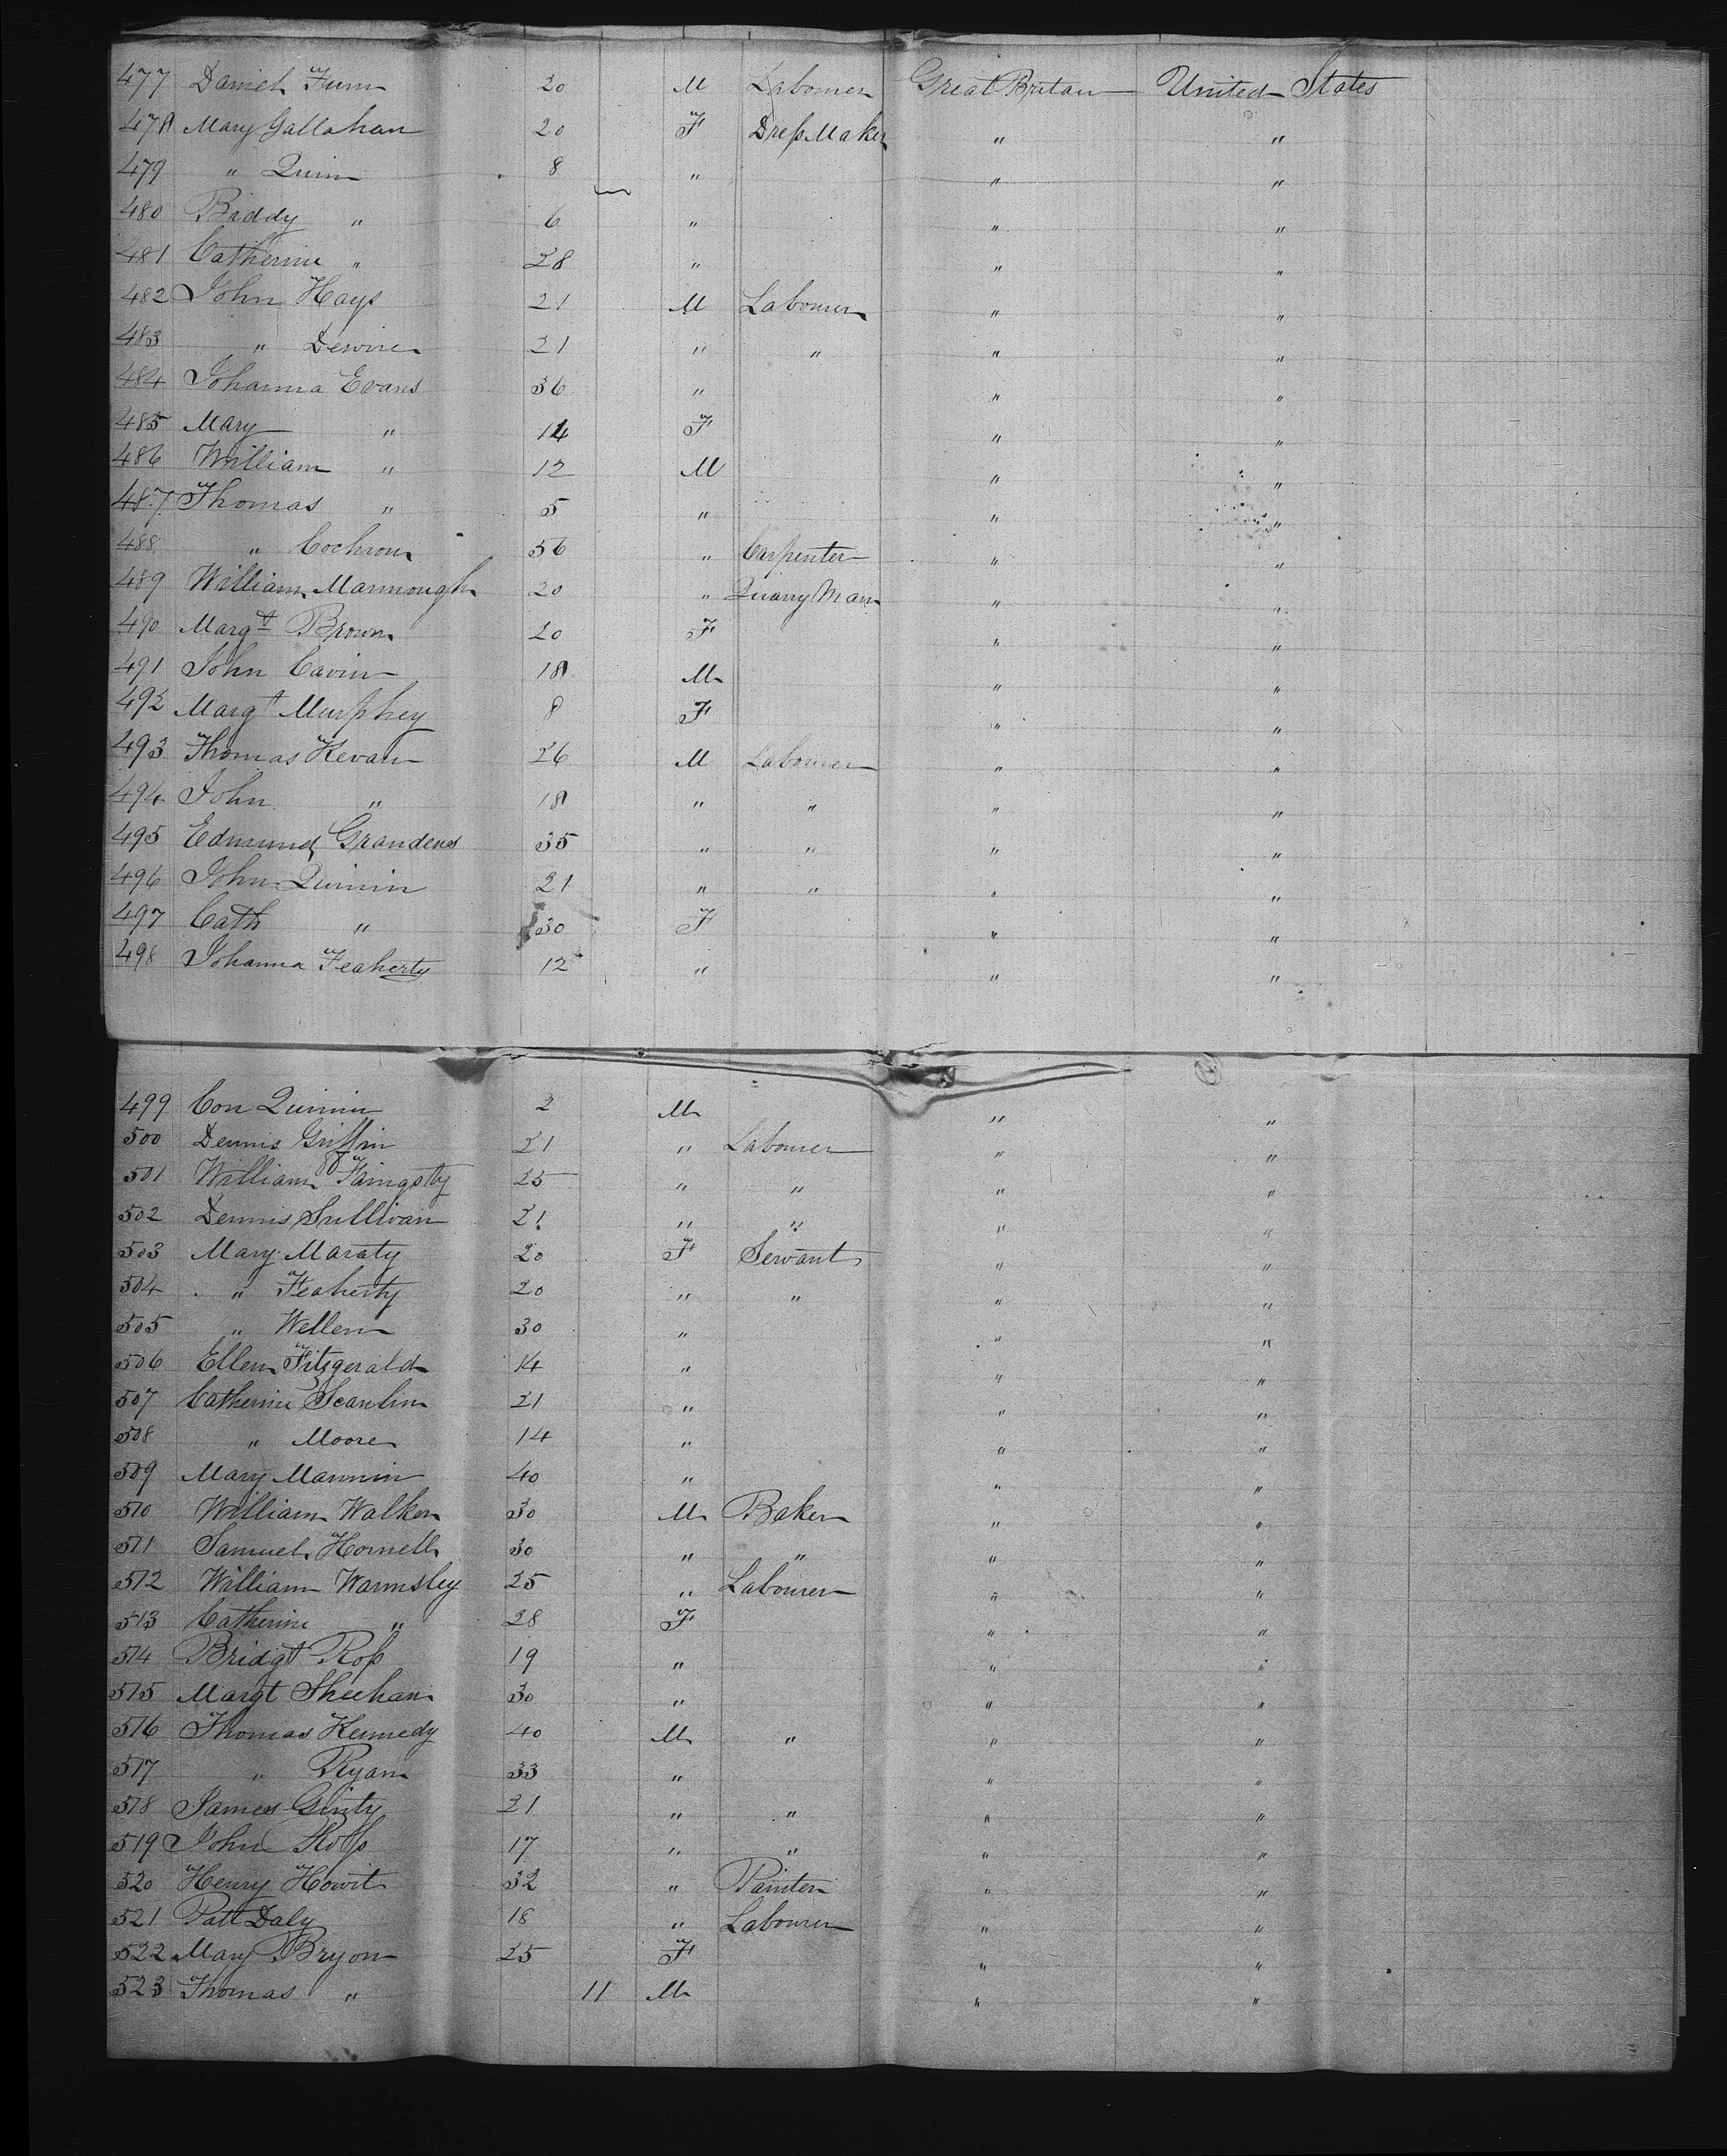 477 Daniel Funn 20 M Labourer Great Britain United States
478 Mary Gallahan 20 F Dress Maker " "
479 " Quinn 8 " " "
480 Biddy " 6 " " "
481 Catherine " 28 " " "
482 John Hays 21 M Labourer " "
483 " Dewire 21 " " " "
484 Johanna Evans 36 " " "
485 Mary " 14 F " "
486 William " 12 M " "
487 Thomas " 5 " " "
488 " Cochron 56 " Carpenter " "
489 William Mannough 20 " Quarry Man " "
490 Margt Brown 20 F " "
491 John Cavin 18 M " "
492 Margt Murphey 8 F " "
493 Thomas Kevan 26 M Labourer " "
494 John " 18 " " " "
495 Edmund Grandens 35 " " " "
496 John Quinin 21 " " " "
497 Cath " 30 F " "
498 Johanna Feaherty 12 " " "
499 Con Quinin 2 M " "
500 Dennis Griffin 21 " Labourer " "
501 William 25 " " " "
502 Dennis Sullivan 21 " " " "
503 Mary Maraty 20 F Servant " "
504 " Feaherty 20 " " " "
505 " Wellen 30 " " "
506 Ellen Fitzgerald 14 " " "
507 Catherine Scanlin 21 " " "
508 " Moore 14 " " "
509 Mary Mannin 40 " " "
510 William Walker 30 M Baker " "
511 Samuel Hornell 30 " " " "
512 William Warmsley 25 " Labourer " "
513 Catherine " 28 F " "
514 Bridgt Ross 19 " " "
515 Margt Sheehan 30 " " "
516 Thomas Kennedy 40 M " " "
517 " Ryan 33 " " "
518 James Ginty 21 " " " "
519 John Ross 17 " " " "
520 Henry Howit 32 " Painter " "
521 Patt Daly 18 " Labourer " "
522 Mary Bryon 25 F " "
523 Thomas " 11 M " "